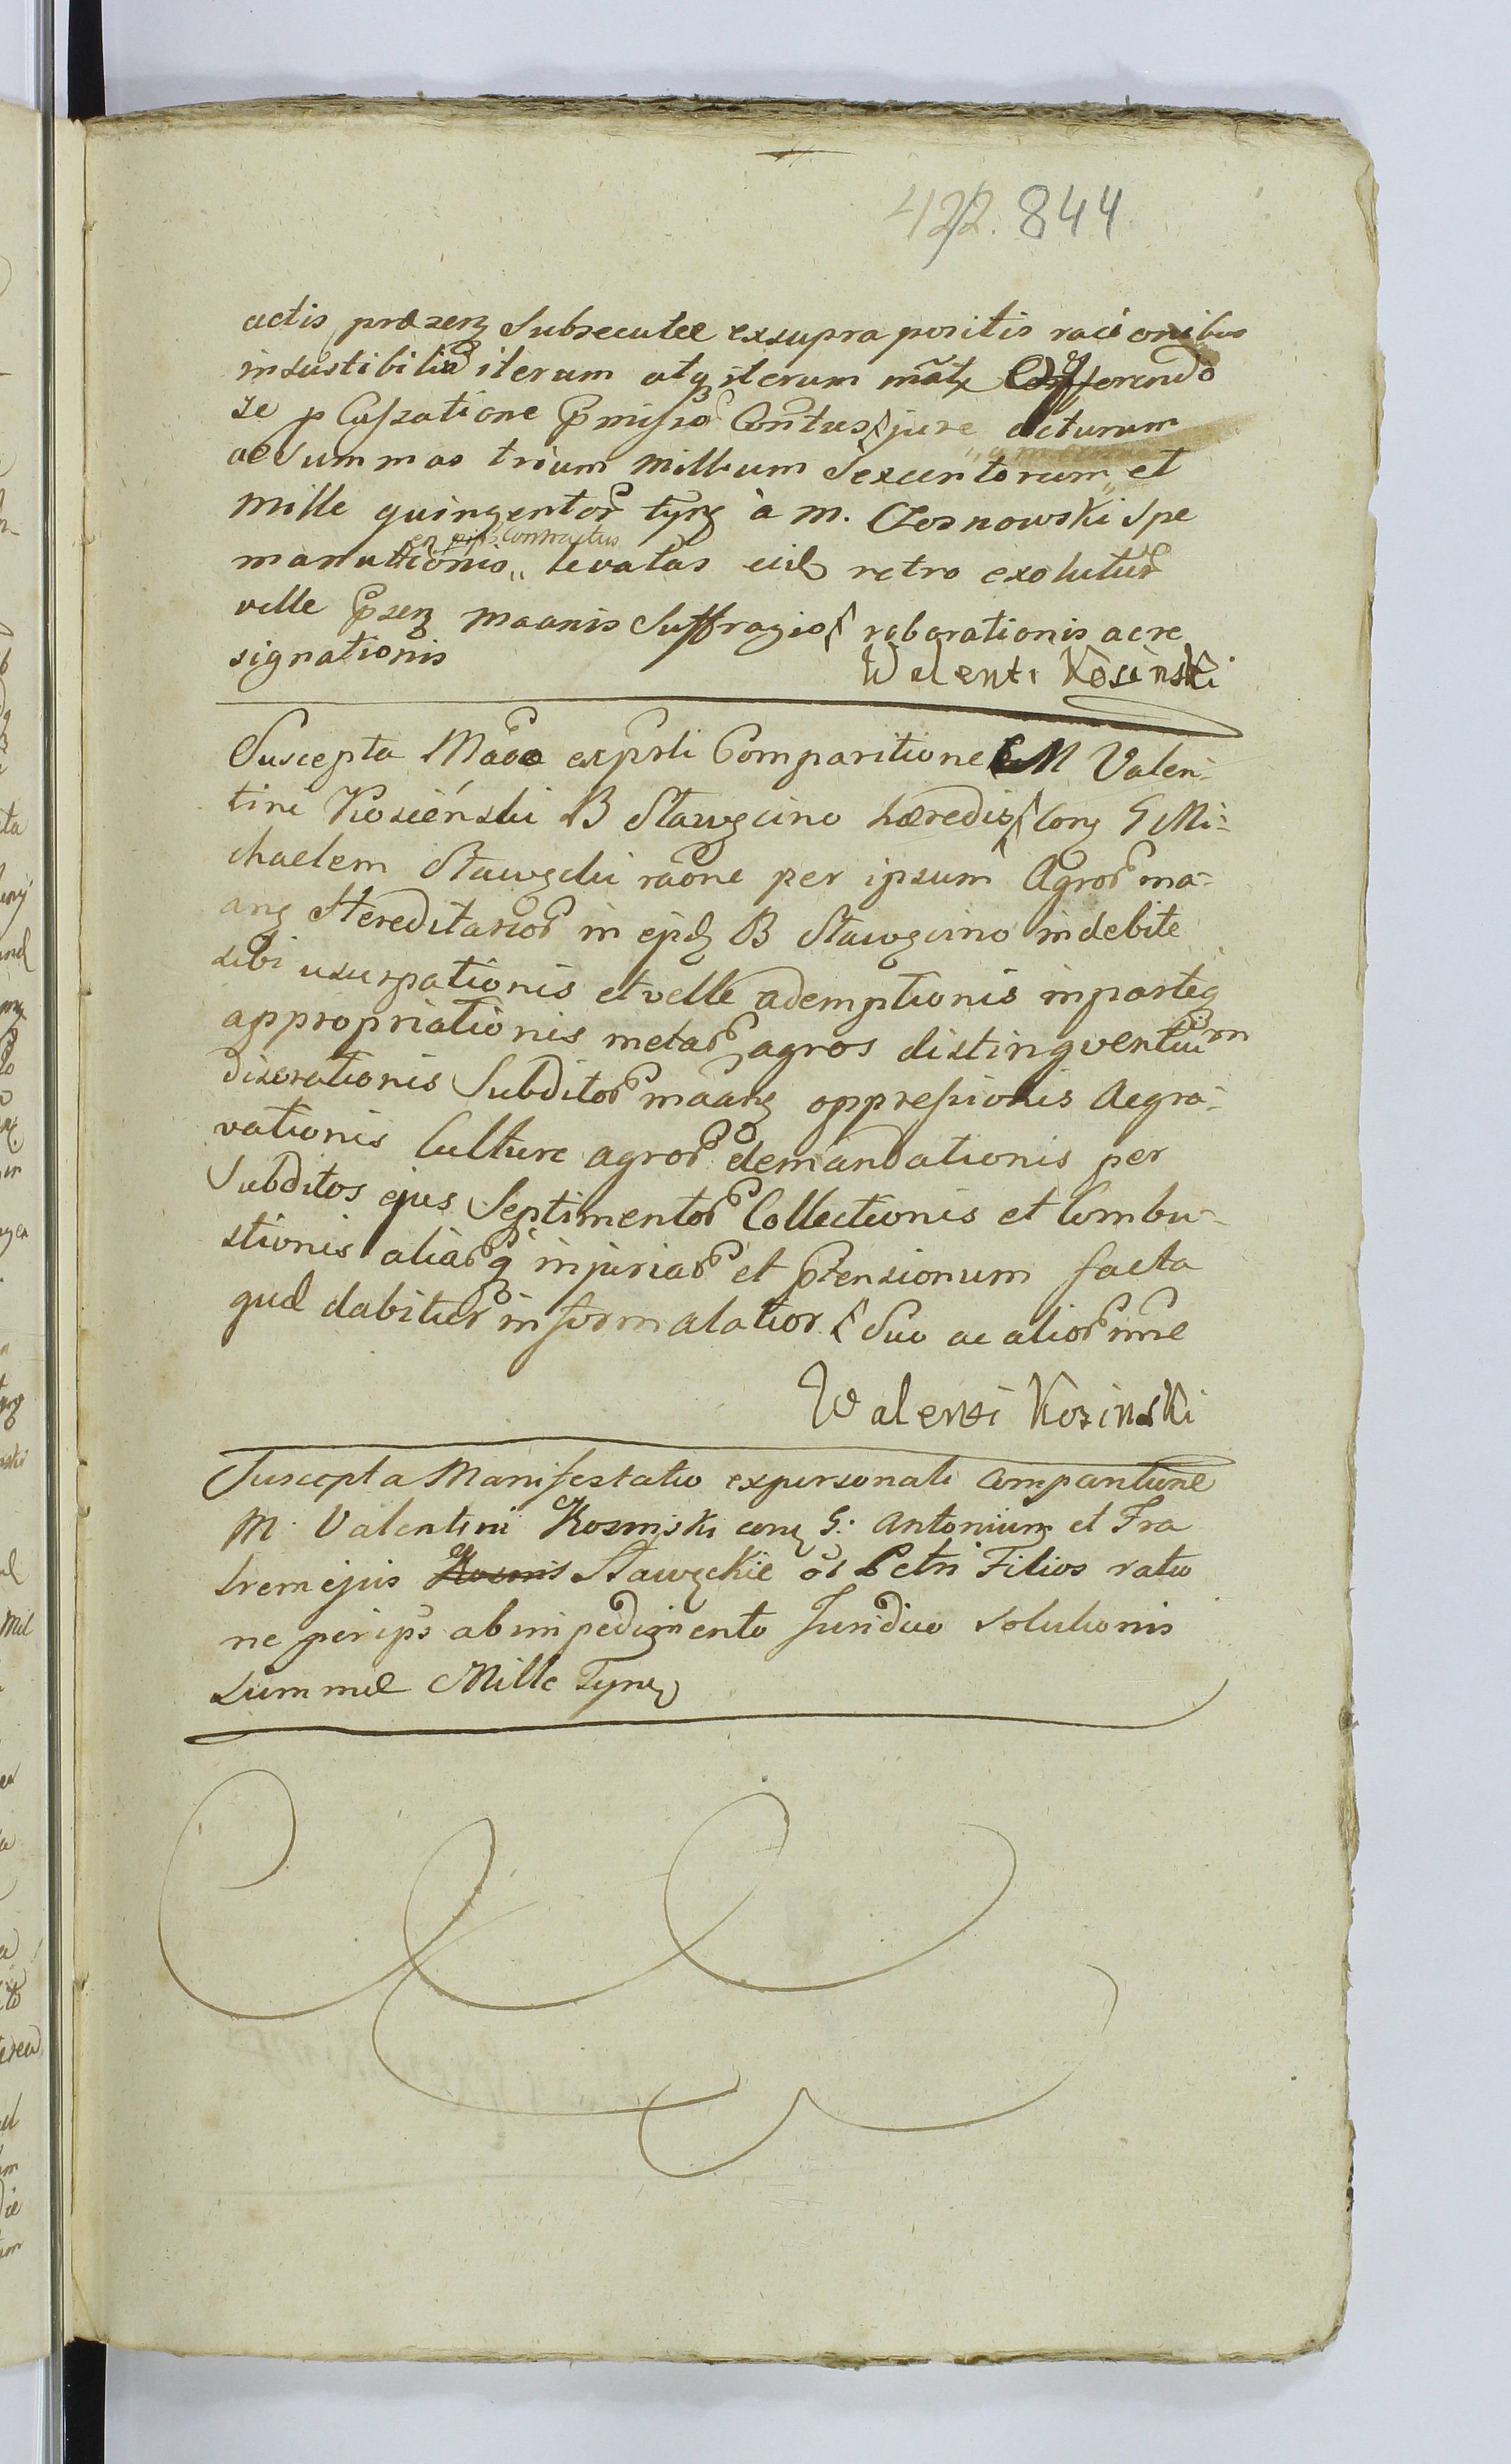 422. 844
actis præsenz Subsecutæ exsupra positis racionibus
insustibilia iterum atq iterum mate Offerendo
se p Cassatione pmisso Contus jure acturum
ac Summas trium millium Sexcentorum et
Mille quingentor tynz à M. Czosnowski Spe
en ejus Contractus
manuttionis levatas eid retro exolutur
velle psenz maanis Suffragio roborationis ac re
signationis
Walenti Kosinski
Suscepta Maoo expsli Comparitione M Valen-
tini Kosiénski B Stawzcino hæredis Conz G Mi-
chaelem Stawzcki raone per ipsum Agror ma-
anz Hereditarior in ejdz B Stawzcino indebite
sibi usurpationis et velle ademptionis inparteq
appropriationis metar agros distingventium
diserationis Subditor maanz oppressionis Aegra-
vationis Culture agror demandationis per
Subditos ejus Septimentor Collectionis et Combu-
stionis aliarq injuriar et ptensionum facta
qud dabitur informalatior Suo ac alior nme
Walenti Kozinski
Suscepta Manifestatio expersonali Comparitione
M. Valentini Kosinski conz G. Antonium et Fra
trem ejus Kosins Stawzckie os Petri Filios ratio
ne per ips ab impedimento Juridico Solutionis
Summæ Mille Tynz